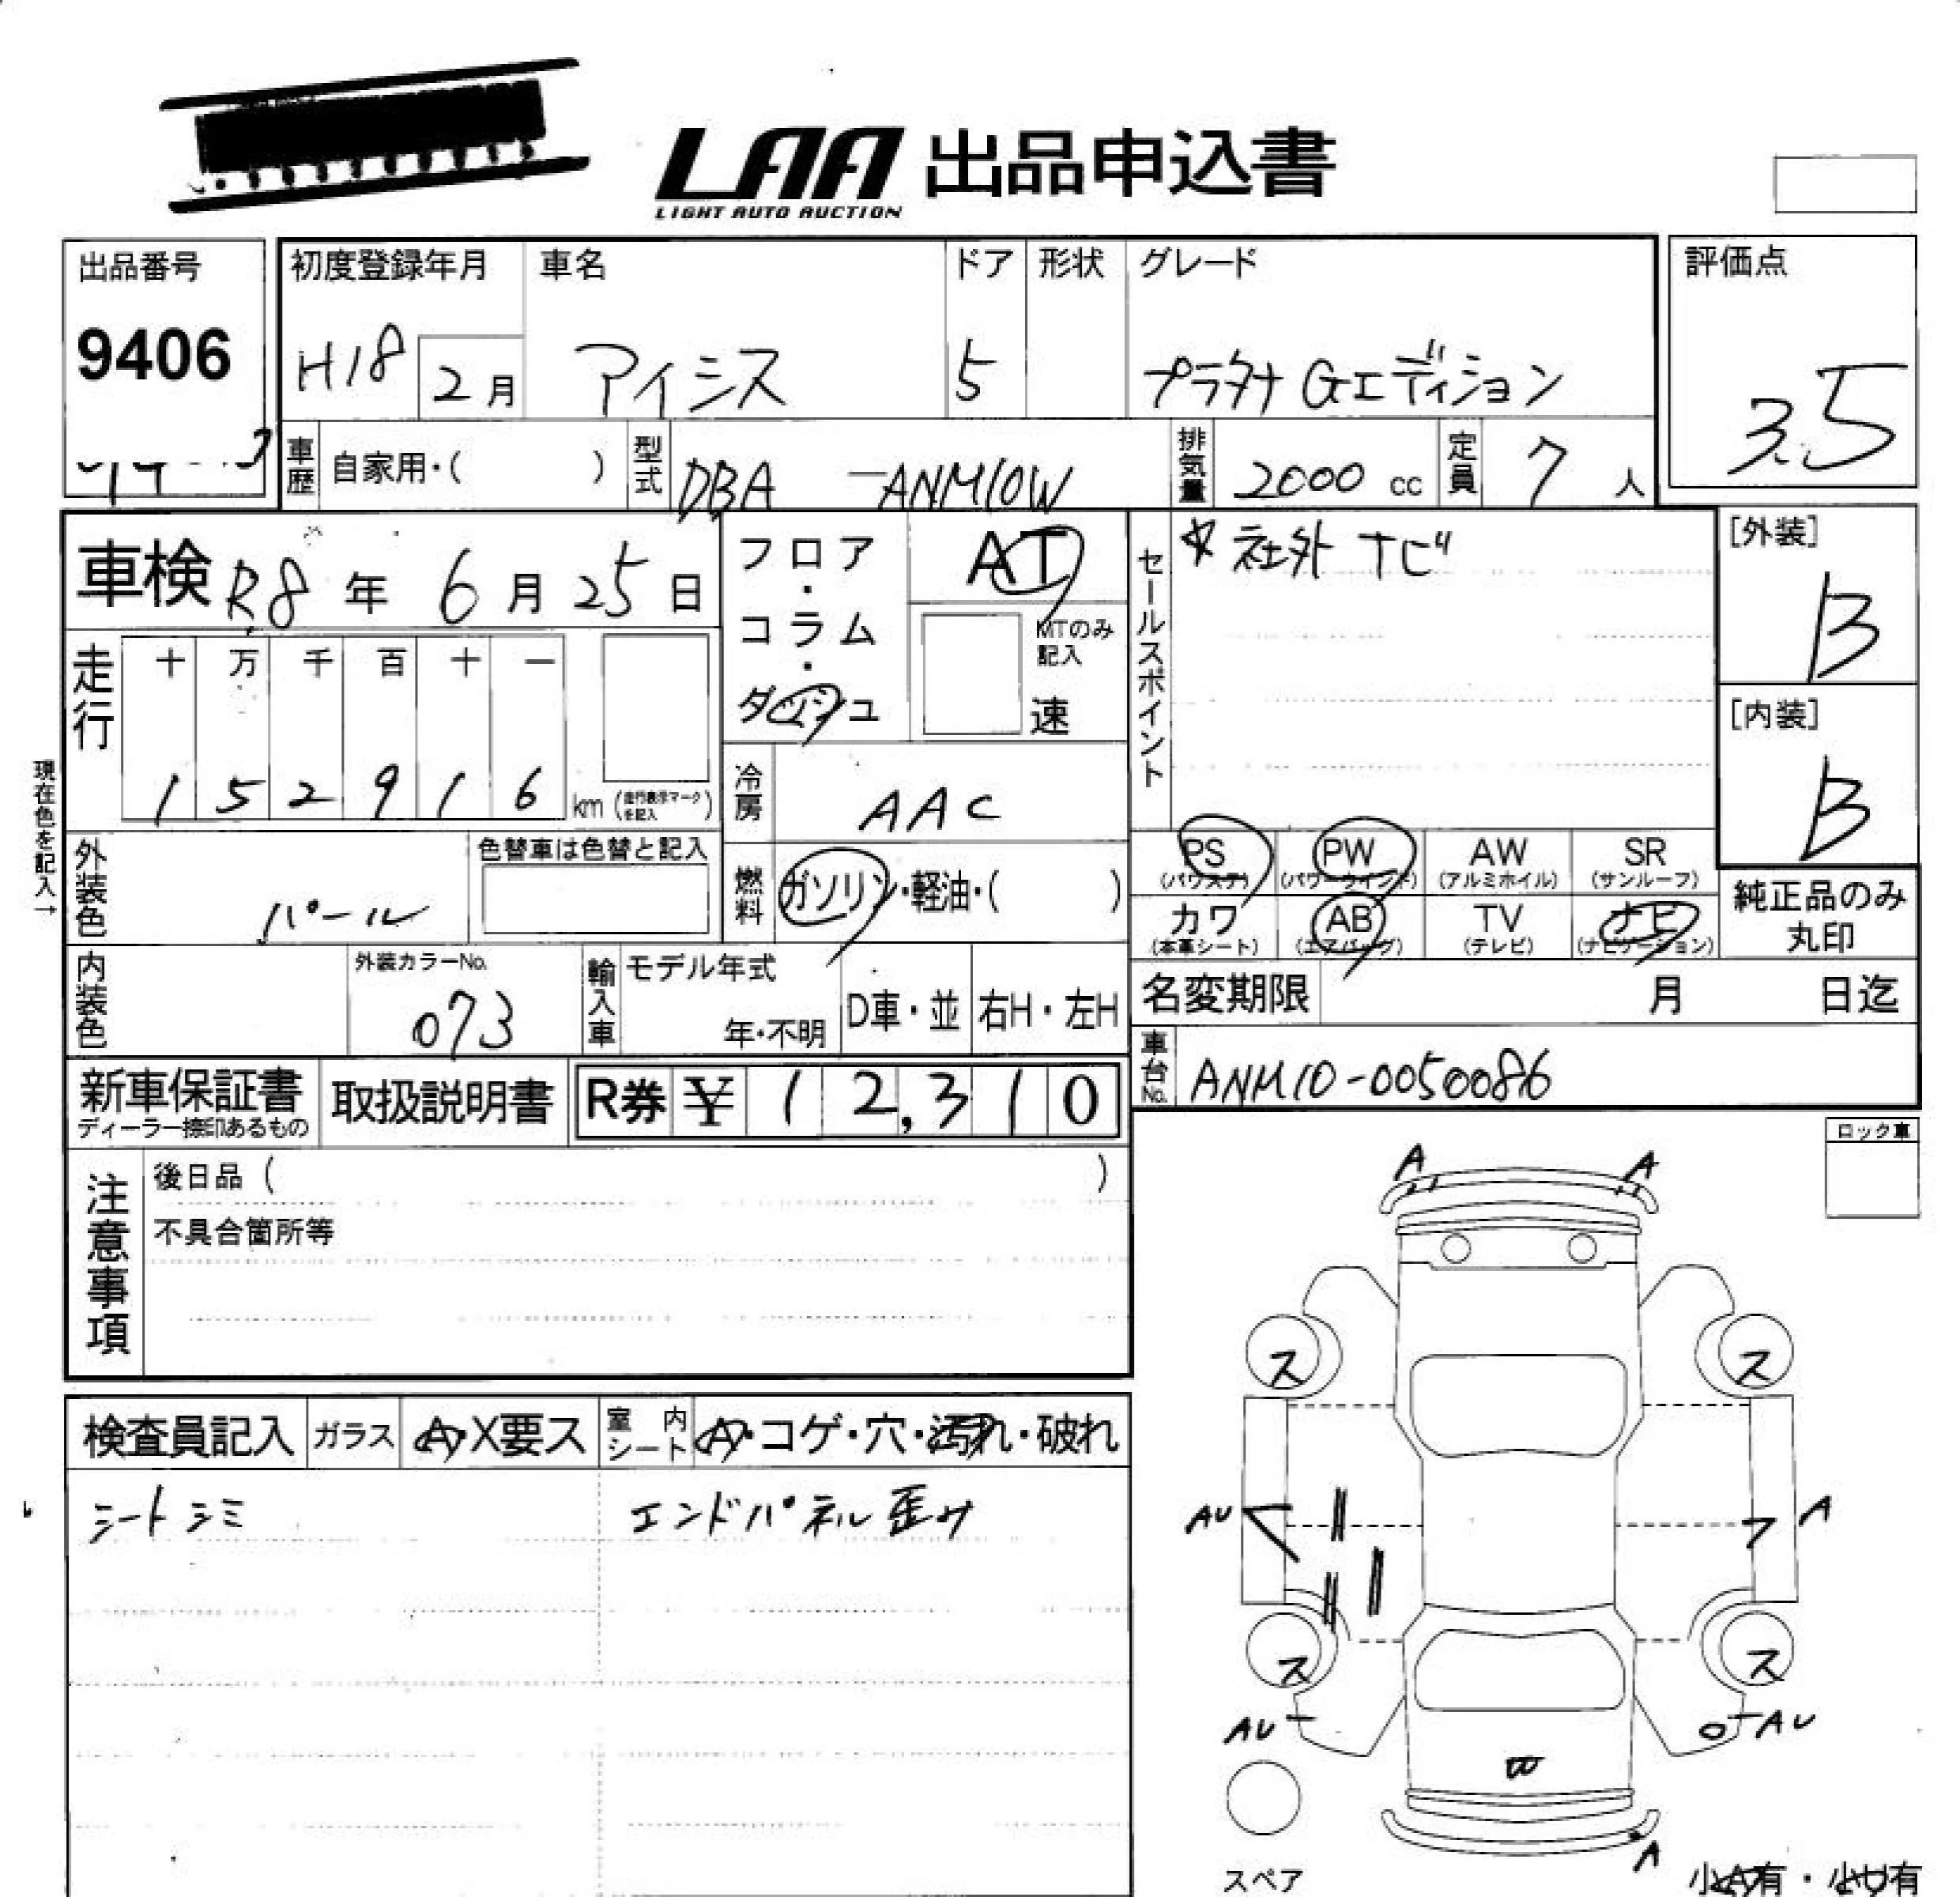 LAA 出品申込書
LIGHT AUTO AUCTION
出品番号
9406
初度登録年月
H18 2月
車名
アイシス
ドア
5
形状
グレード
プラタナ Gエディション
評価点
3.5
車歴 自家用・( )
型式 DBA -ANM10W
排気量 2000 cc
定員 7 人
車検 R8年 6月 25日
フロア・コラム・ダッシュ
AT
MTのみ記入
速
セールスポイント
☆社外ナビ
[外装]
B
[内装]
B
走行
十 万 千 百 十 一
1 5 2 9 1 6 km (走行表示マークを記入)
現在色を記入→
冷房 AAC
外装色 パール
色替車は色替と記入
燃料 ガソリン・軽油・( )
PS (パワステ)
PW (パワーウインド)
AW (アルミホイル)
SR (サンルーフ)
カワ (本革シート)
AB (エアバッグ)
TV (テレビ)
ナビ (ナビゲーション)
純正品のみ
丸印
内装色
外装カラーNo.
073
輸入車
モデル年式
年・不明
D車・並
右H・左H
名変期限 月 日迄
車台No. ANM10-0050086
新車保証書
ディーラー捺印あるもの
取扱説明書
R券 ¥ 12,310
注意事項
後日品 ( )
不具合箇所等
ロック車
検査員記入
ガラス A・X要ス
室内シート A・コゲ・穴・汚れ・破れ
シートシミ
エンドパネル歪ミ
A A
ス ス
AU A
ス ス
AU AU
W
A
スペア
小A有・小U有